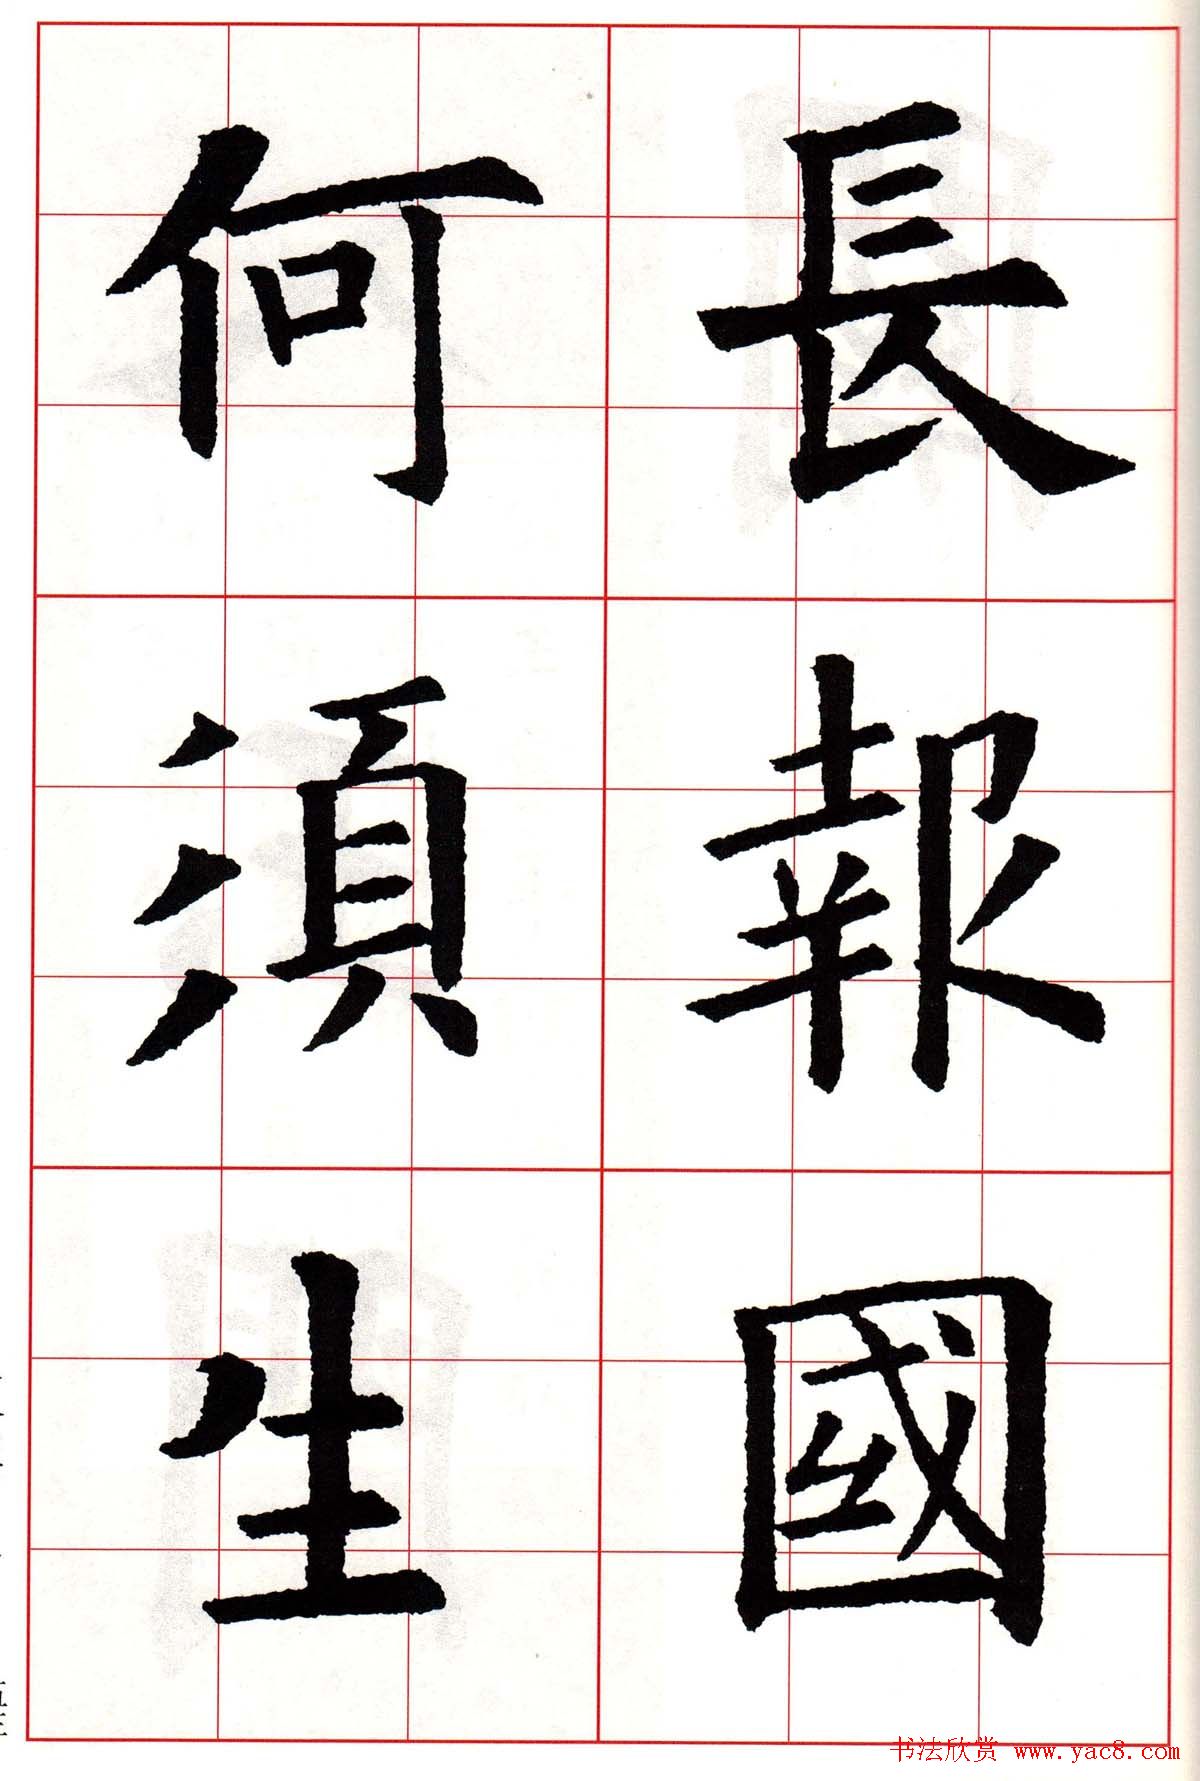 長報國
何須生
书法欣赏 www.yac8.com